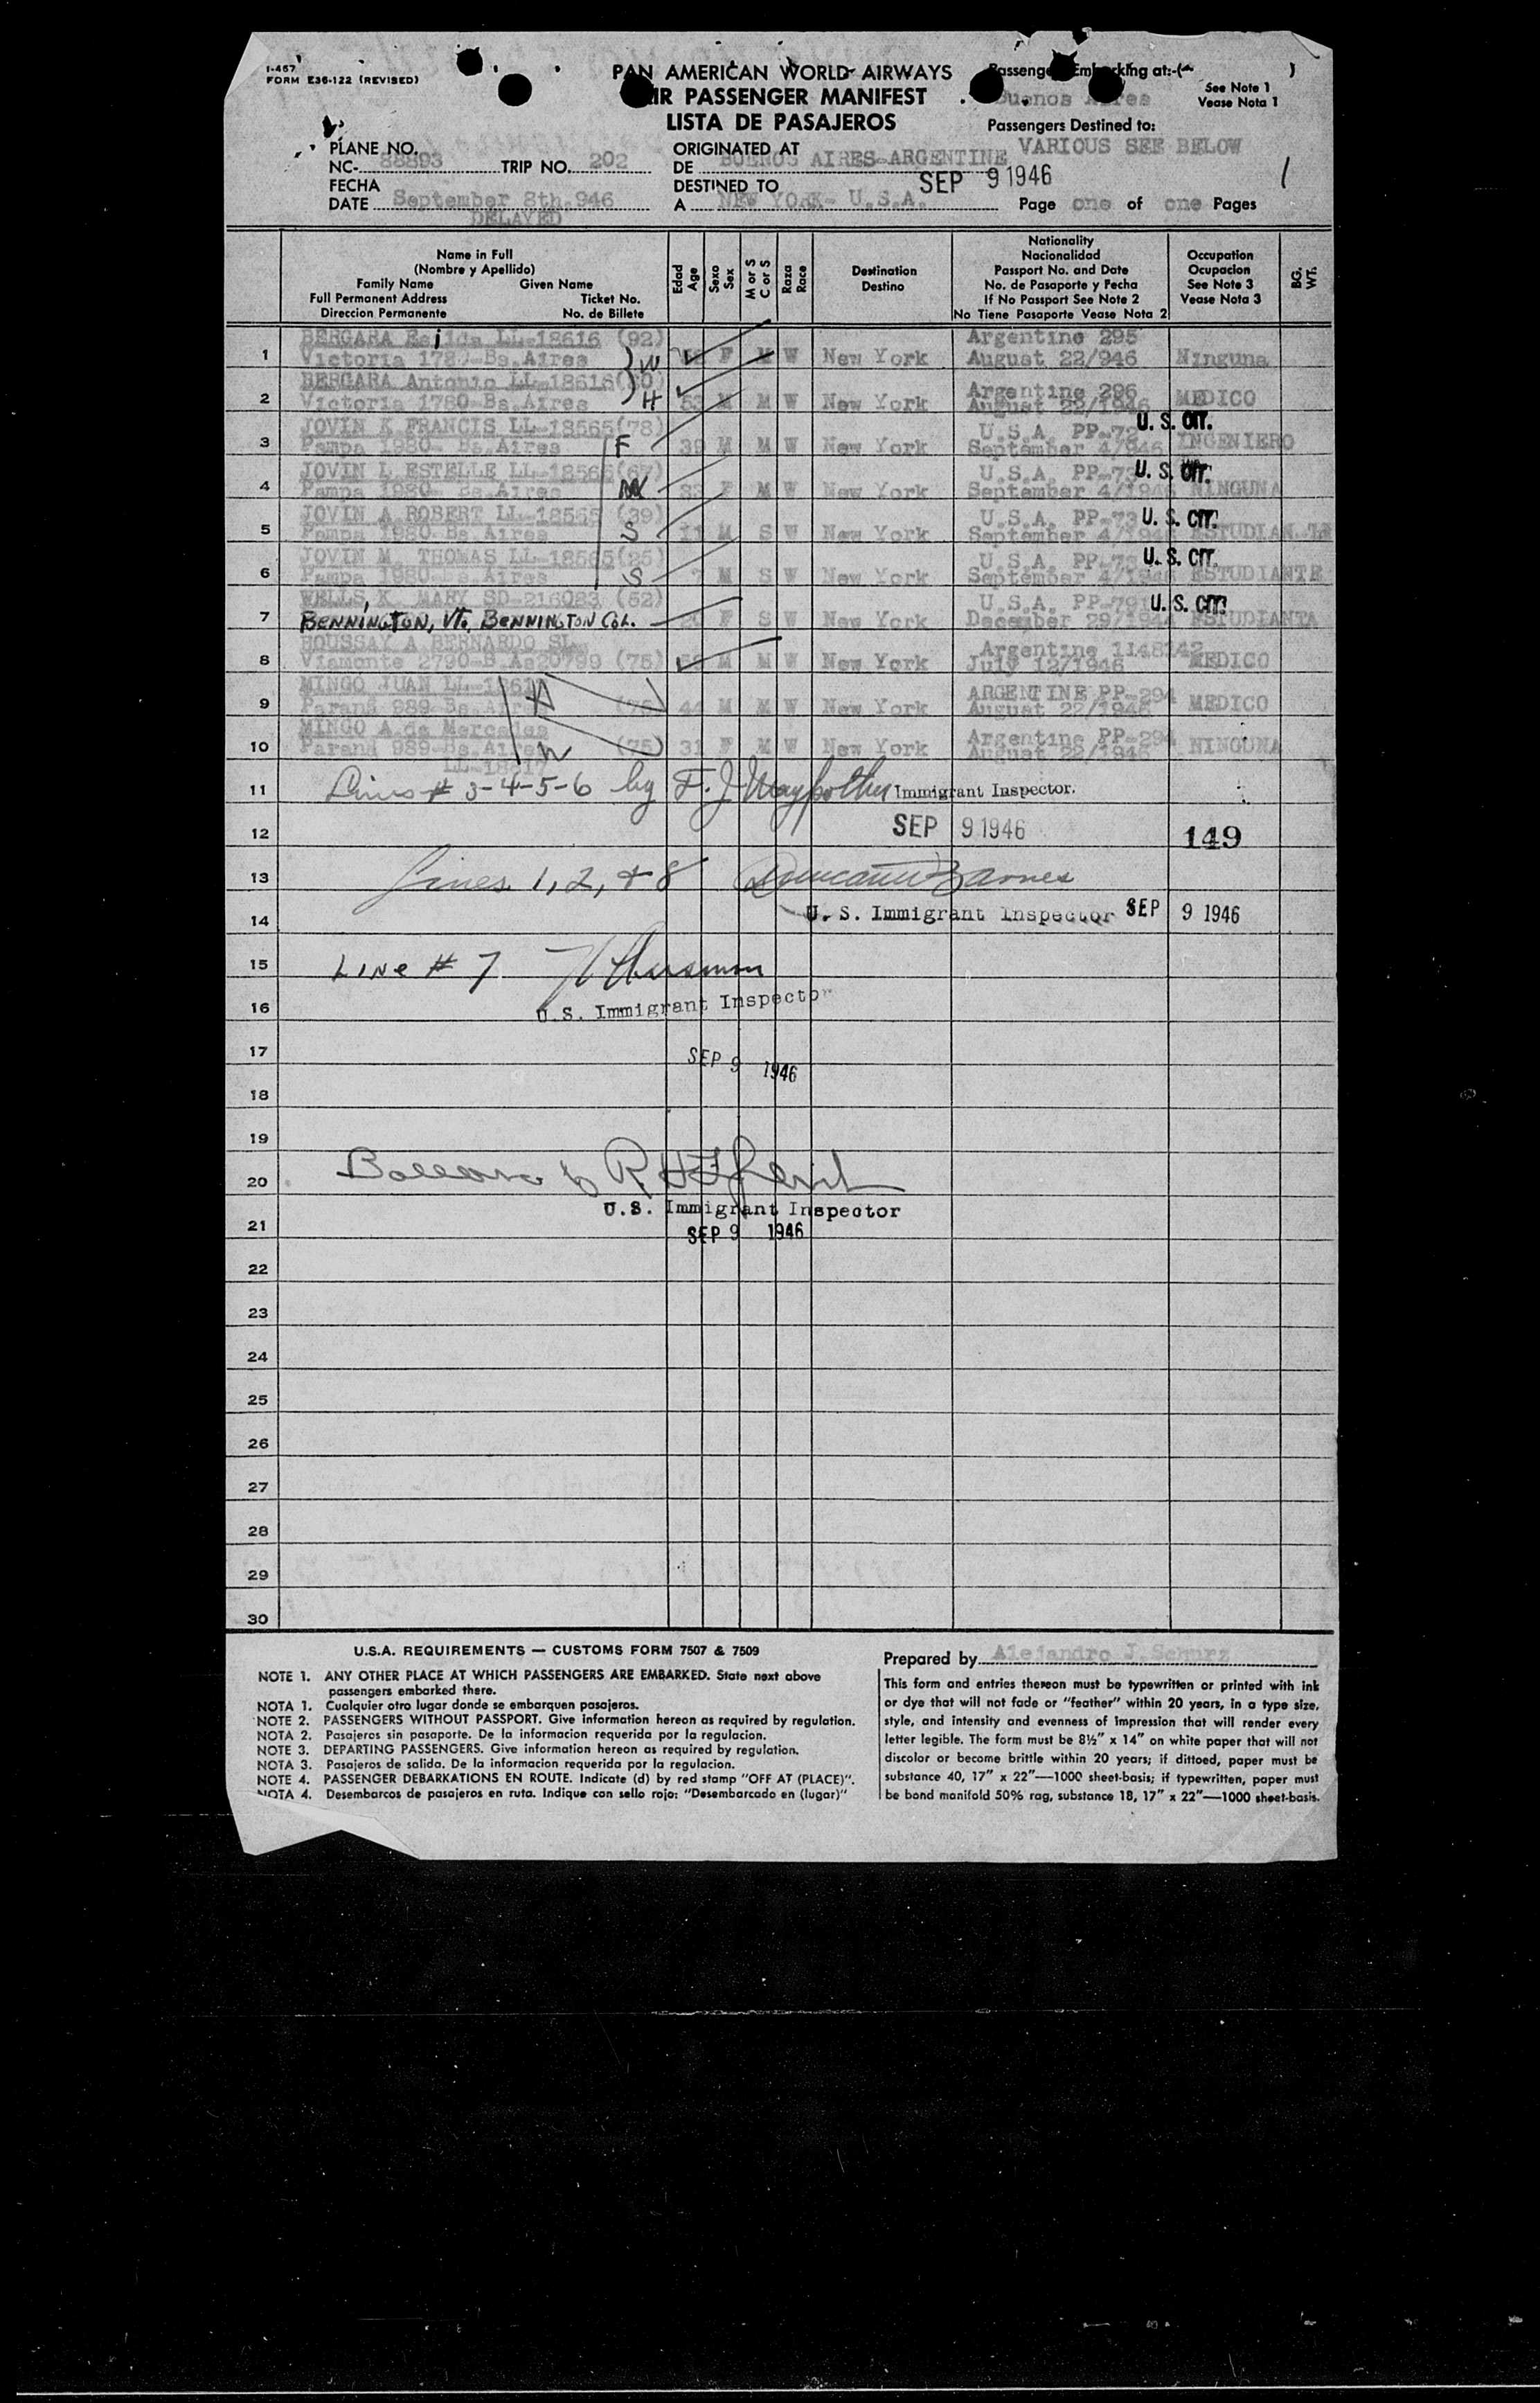 I-457
FORM E36-122 (REVISED)
PAN AMERICAN WORLD AIRWAYS
AIR PASSENGER MANIFEST
LISTA DE PASAJEROS
Passengers Embarking at:-( )
Buenos Aires
See Note 1
Vease Nota 1
Passengers Destined to:
VARIOUS SEE BELOW
PLANE NO.
NC- 88893 TRIP NO. 202
FECHA
DATE September 8th.946
DELAYED
ORIGINATED AT
DE BUENOS AIRES-ARGENTINE
DESTINED TO
A NEW YORK- U.S.A.
SEP 9 1946
Page one of one Pages
1
Name in Full
(Nombre y Apellido)
Family Name Given Name
Full Permanent Address Ticket No.
Direccion Permanente No. de Billete
Edad
Age
Sexo
Sex
M or S
C or S
Raza
Race
Destination
Destino
Nationality
Nacionalidad
Passport No. and Date
No. de Pasaporte y Fecha
If No Passport See Note 2
No Tiene Pasaporte Vease Nota 2
Occupation
Ocupacion
See Note 3
Vease Nota 3
BG.
WT.
BERGARA LL-18616 (92) Argentine 295
1 Victoria 1780-Bs.Aires W F M W New York August 22/946 Ninguna
BERGARA Antonio LL-18616 Argentine 296
2 Victoria 1780-Bs.Aires H 53 M M W New York August 22/1946 MEDICO
JOVIN K FRANCIS LL-18565(78) U.S.A. PP-73 U. S. CIT.
3 Pampa 1980- Bs.Aires F 39 M M W New York September 4/946 INGENIERO
JOVIN L ESTELLE LL-18565(67) U.S.A. PP-73 U. S. CIT.
4 Pampa 1980- Bs.Aires 33 F M W New York September 4/1946 NINGUNA
JOVIN A ROBERT LL-18565 (39) U.S.A. PP-73 U. S. CIT.
5 Pampa 1980-Bs.Aires S 11 M S W New York September 4/1946 ESTUDIANTE
JOVIN M. THOMAS LL-18565(25) U.S.A. PP-73 U. S. CIT.
6 Pampa 1980-Bs.Aires S 7 M S W New York September 4/1946 ESTUDIANTE
WELLS, K. MARY SD-216083 (52) U.S.A. PP-791 U. S. CIT.
7 BENNINGTON, VT., BENNINGTON COL. 20 F S W New York December 29/1944 ESTUDIANTA
HOUSSAY A BERNARDO SL Argentine 1148142
8 Viamonte 2790-B.As20799 (75) M M W New York July 12/1946 MEDICO
MINGO JUAN LL-18617 ARGENTINE PP-294
9 Paraná 989-Bs.Aires H (75) 44 M M W New York August 22/1946 MEDICO
MINGO A de Mercedes Argentine PP-294
10 Paraná 989-Bs.Aires W (75) 31 F M W New York August 22/1946 NINGUNA
LL-18617
11 Lines # 3-4-5-6 by F. J. Immigrant Inspector.
12 SEP 9 1946 149
13 Lines 1, 2, & 8 Barnes
14 U. S. Immigrant Inspector SEP 9 1946
15 Line # 7
16 U.S. Immigrant Inspector
17 SEP 9 1946
18
19
20
U.S. Immigrant Inspector
21 SEP 9 1946
22
23
24
25
26
27
28
29
30
U.S.A. REQUIREMENTS — CUSTOMS FORM 7507 & 7509
NOTE 1. ANY OTHER PLACE AT WHICH PASSENGERS ARE EMBARKED. State next above
passengers embarked there.
NOTA 1. Cualquier otro lugar donde se embarquen pasajeros.
NOTE 2. PASSENGERS WITHOUT PASSPORT. Give information hereon as required by regulation.
NOTA 2. Pasajeros sin pasaporte. De la informacion requerida por la regulacion.
NOTE 3. DEPARTING PASSENGERS. Give information hereon as required by regulation.
NOTA 3. Pasajeros de salida. De la informacion requerida por la regulacion.
NOTE 4. PASSENGER DEBARKATIONS EN ROUTE. Indicate (d) by red stamp "OFF AT (PLACE)".
NOTA 4. Desembarcos de pasajeros en ruta. Indique con sello rojo: "Desembarcado en (lugar)"
Prepared by Alejandro J. Schurz
This form and entries thereon must be typewritten or printed with ink
or dye that will not fade or "feather" within 20 years, in a type size,
style, and intensity and evenness of impression that will render every
letter legible. The form must be 8½" x 14" on white paper that will not
discolor or become brittle within 20 years; if dittoed, paper must be
substance 40, 17" x 22"—1000 sheet-basis; if typewritten, paper must
be bond manifold 50% rag, substance 18, 17" x 22"—1000 sheet-basis.